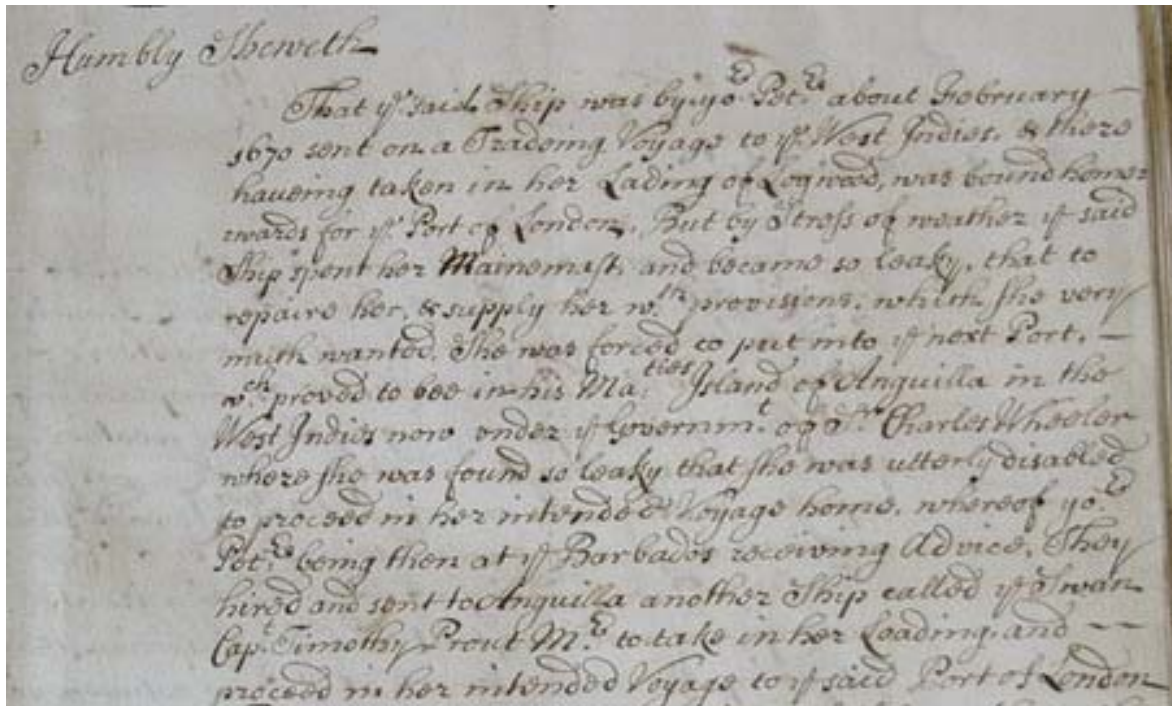 Humbly Sheweth
That yᵉ said Ship was by yoʳ Petʳˢ about February
1670 sent on a Tradeing Voyage to yᵉ West Indies, & there
haveing taken in her Lading of Logwood, was bound home
wards for yᵉ Port of London, But by Stress of weather yᵉ said
Ship spent her Mainemast, and became so leaky, that to
repaire her, & supply her wᵗʰ provisions, which she very
much wanted, She was forced to put into yᵉ next Port, —
wᶜʰ proved to bee in his Maᵗⁱᵉˢ Island of Anguilla in the
West Indies now under yᵉ Governmᵗ of Sʳ Charles Wheeler
where she was found so leaky that she was utterly disabled
to proceed in her intended Voyage home, whereof yoʳ
Petʳˢ being then at yᵉ Barbados receiving Advice, They
hired and sent to Anguilla another Ship called yᵉ Swan
Capᵗ Timothy Prout Mʳ to take in her Loading, and — —
proceed in her intended Voyage to yᵉ said Port of London